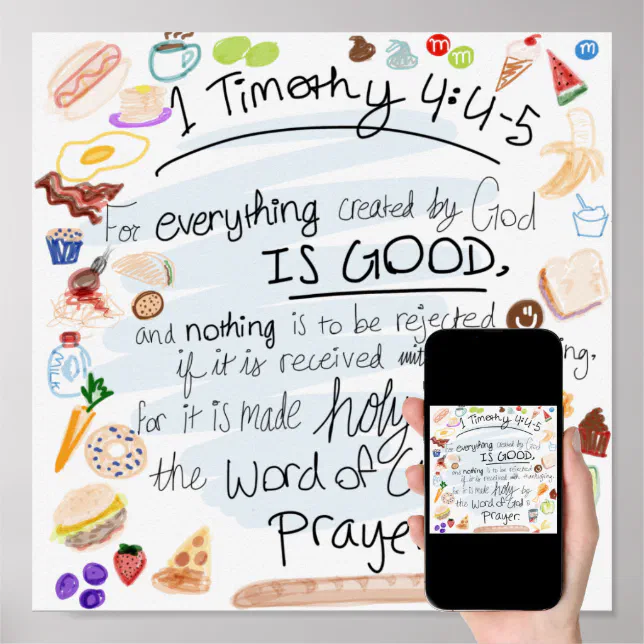 m
m
m
1 Timothy 4:4-5
For everything created by God
IS GOOD,
and nothing is to be rejected
if it is received with
for it is made holy
the Word of
Prayer
MILK
1 Timothy 4:4-5
For everything created by God
IS GOOD,
and nothing is to be rejected
if it is received with thanksgiving,
for it is made holy by
the Word of God &
Prayer.